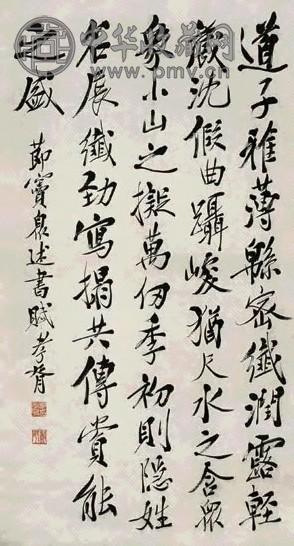 中华收藏网
www.pmv.cn
道子雅薄緜密纖潤露輕
沈假曲躡峻猶尺水之含眾
象小山之擬萬仞季初則隱姓
名辰纖勁寫搨共傳賞能
之盛
節竇臮述書賦孝胥